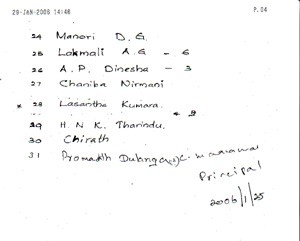 29-JAN-2006 14:46 P.04
24 Manori D.G.
25 Lakmali A.G - 6
26 A.P. Dinesha - 3
27 Chaniba Nirmani
* 28 Lasantha Kumara.
29 H.N.K. Tharindu.
30 Chirath
31
Principal
2006/1/25